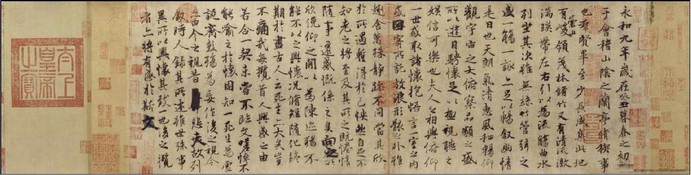 永和九年歲在癸丑暮春之初會
于會稽山陰之蘭亭脩稧事
也群賢畢至少長咸集此地
有崇山峻領茂林脩竹又有清流激
湍暎帶左右引以為流觴曲水
列坐其次雖無絲竹管弦之
盛一觴一詠亦足以暢敘幽情
是日也天朗氣清惠風和暢仰
觀宇宙之大俯察品類之盛
所以遊目騁懷足以極視聽之
娛信可樂也夫人之相與俯仰
一世或取諸懷抱悟言一室之內
或因寄所託放浪形骸之外雖
趣舍萬殊靜躁不同當其欣
於所遇蹔得於己怏然自足不
知老之將至及其所之既惓情
隨事遷感慨係之矣向之所
欣俛仰之閒以為陳迹猶不
能不以之興懷況脩短隨化終
期於盡古人云死生亦大矣豈
不痛哉每攬昔人興感之由
若合一契未嘗不臨文嗟悼不
能喻之於懷固知一死生為虛
誕齊彭殤為妄作後之視今
亦由今之視昔悲夫故列
敘時人錄其所述雖世殊事
異所以興懷其致一也後之攬
者亦將有感於斯文
太上
皇帝
之寶